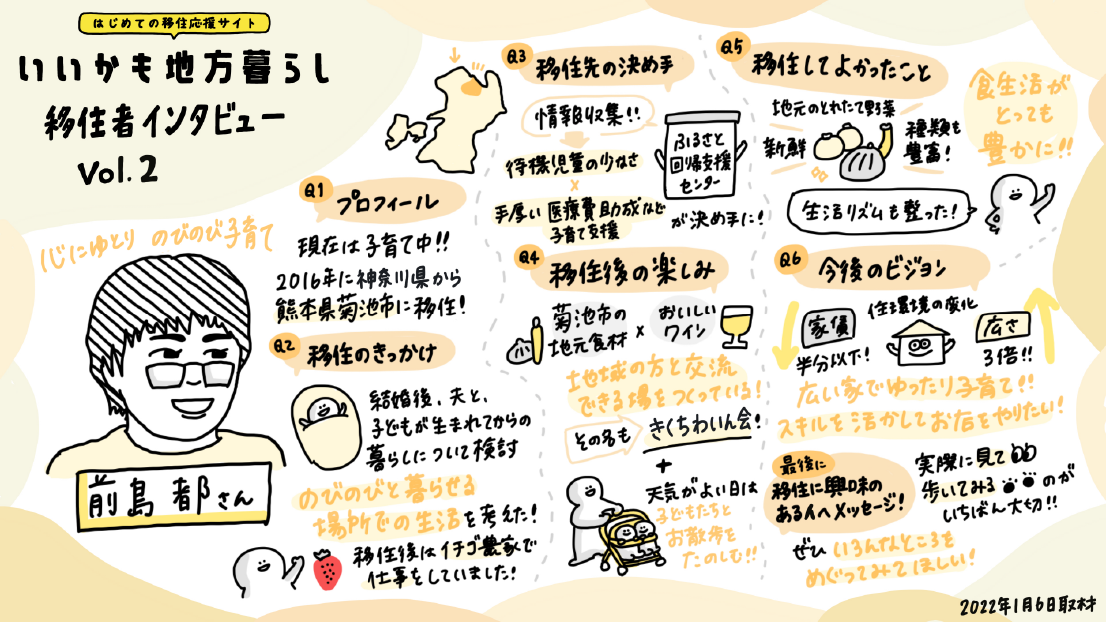 はじめての移住応援サイト
いいかも地方暮らし
移住者インタビュー
Vol.2
心にゆとり のびのび子育て
前島 都さん
Q1 プロフィール
現在は子育て中!!
2016年に神奈川県から
熊本県菊池市に移住!
Q2 移住のきっかけ
結婚後、夫と、
子どもが生まれてからの
暮らしについて検討
のびのびと暮らせる
場所での生活を考えた!
移住後はイチゴ農家で
仕事をしていました!
Q3 移住先の決め手
情報収集!!
待機児童の少なさ
×
手厚い医療費助成など
子育て支援
ふるさと
回帰支援
センター
が決め手に!
Q4 移住後の楽しみ
菊池市の
地元食材
×
おいしい
ワイン
地域の方と交流
できる場をつくっている!
その名も
きくちわいん会!
+
天気がよい日は
子どもたちと
お散歩を
たのしむ!!
Q5 移住してよかったこと
地元のとれたて野菜
新鮮
種類も
豊富!
食生活が
とっても
豊かに!!
生活リズムも整った!
Q6 今後のビジョン
家賃
半分以下!
住環境の変化
広さ
3倍!!
広い家でゆったり子育て!!
スキルを活かしてお店をやりたい!
最後に
移住に興味の
ある人へメッセージ!
実際に見て
歩いてみる のが
いちばん大切!!
ぜひ いろんなところを
めぐってみてほしい!
2022年1月6日取材